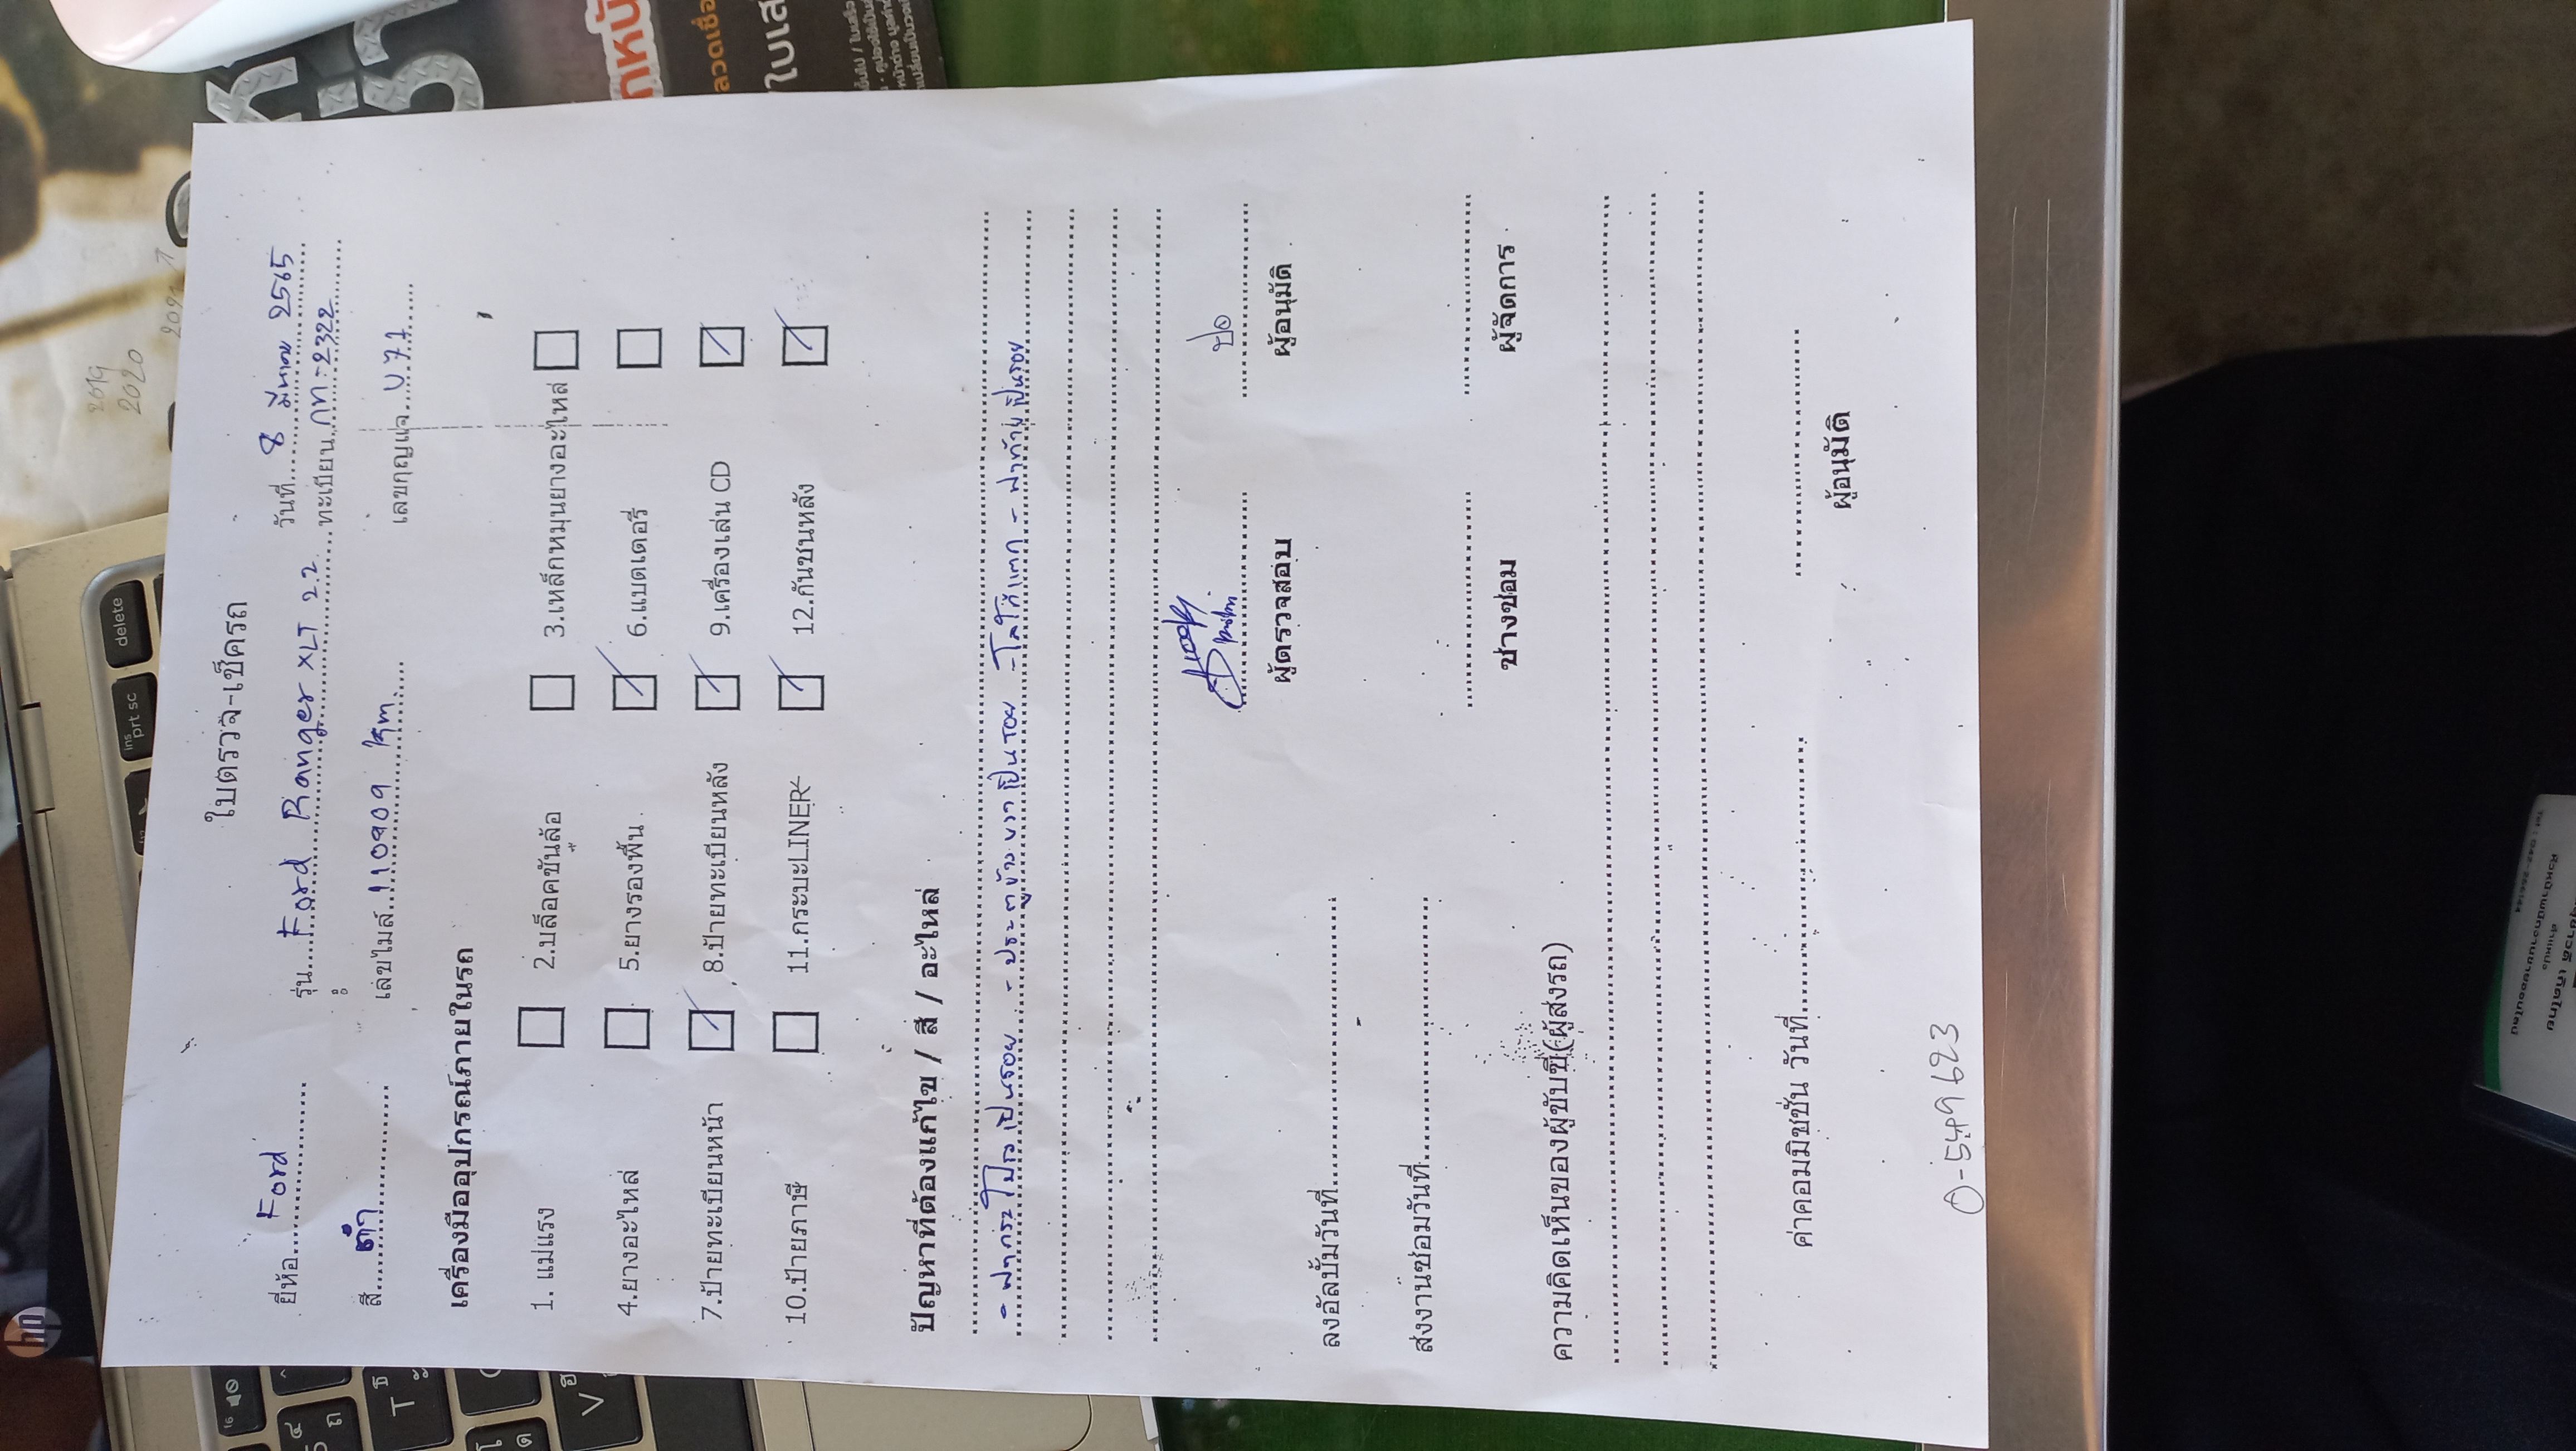 ใบตรวจ-เช็ครถ
ยี่ห้อ.....Ford..... รุ่น.....Ford Ranger XLT 2.2..... วันที่.....8 มีนาคม 2565.....
ทะเบียน.....กท-2322.....
สี.....ดำ..... เลขไมล์.....110909 km..... เลขกุญแจ.....U71.....
เครื่องมืออุปกรณ์ภายในรถ
1. แม่แรง 2.บล็อคขันล้อ 3.เหล็กหมุนยางอะไหล่
4.ยางอะไหล่ 5.ยางรองพื้น 6.แบตเตอรี่
7.ป้ายทะเบียนหน้า 8.ป้ายทะเบียนหลัง 9.เครื่องเล่น CD
10.ป้ายภาษี 11.กระบะLINER 12.กันชนหลัง
ปัญหาที่ต้องแก้ไข / สี / อะไหล่
- ฝากระโปรงเป็นรอย - ประตูข้างขวาเป็นรอย - โลโก้แตก - ฝาท้ายเป็นรอย
ปอ
ผู้ตรวจสอบ ผู้อนุมัติ
ลงอัลบั้มวันที่
ส่งงานซ่อมวันที่
ช่างซ่อม ผู้จัดการ
ความคิดเห็นของผู้ขับขี่(ผู้ส่งรถ)
ค่าคอมมิชชั่น วันที่
ผู้อนุมัติ
0-5549623
2019
2020
delete
prt sc
ins
hp